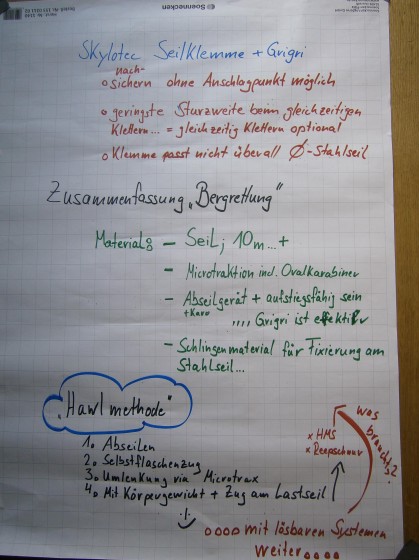 Soennecken
Skylotec Seilklemme + Grigri
nach-
o sichern ohne Anschlagpunkt möglich
o geringste Sturzweite beim gleichzeitigen
Klettern... = gleichzeitig Klettern optional
o Klemme passt nicht überall Ø-Stahlseil
Zusammenfassung „Bergrettung"
Material: – Seil; 10m...+
– Microtraktion incl. Ovalkarabiner
– Abseilgerät + aufstiegsfähig sein
+Kara ,,,, Grigri ist effektiv
– Schlingenmaterial für Fixierung am
Stahlseil...
„Hawl methode"
1. Abseilen
2. Selbstflaschenzug
3. Umlenkung via Microtrax
4. Mit Körpergewicht + Zug am Lastseil
:-)
was
braucht's?
x HMS
x Reepschnur
oooo mit lösbaren Systemen
weiter oooo